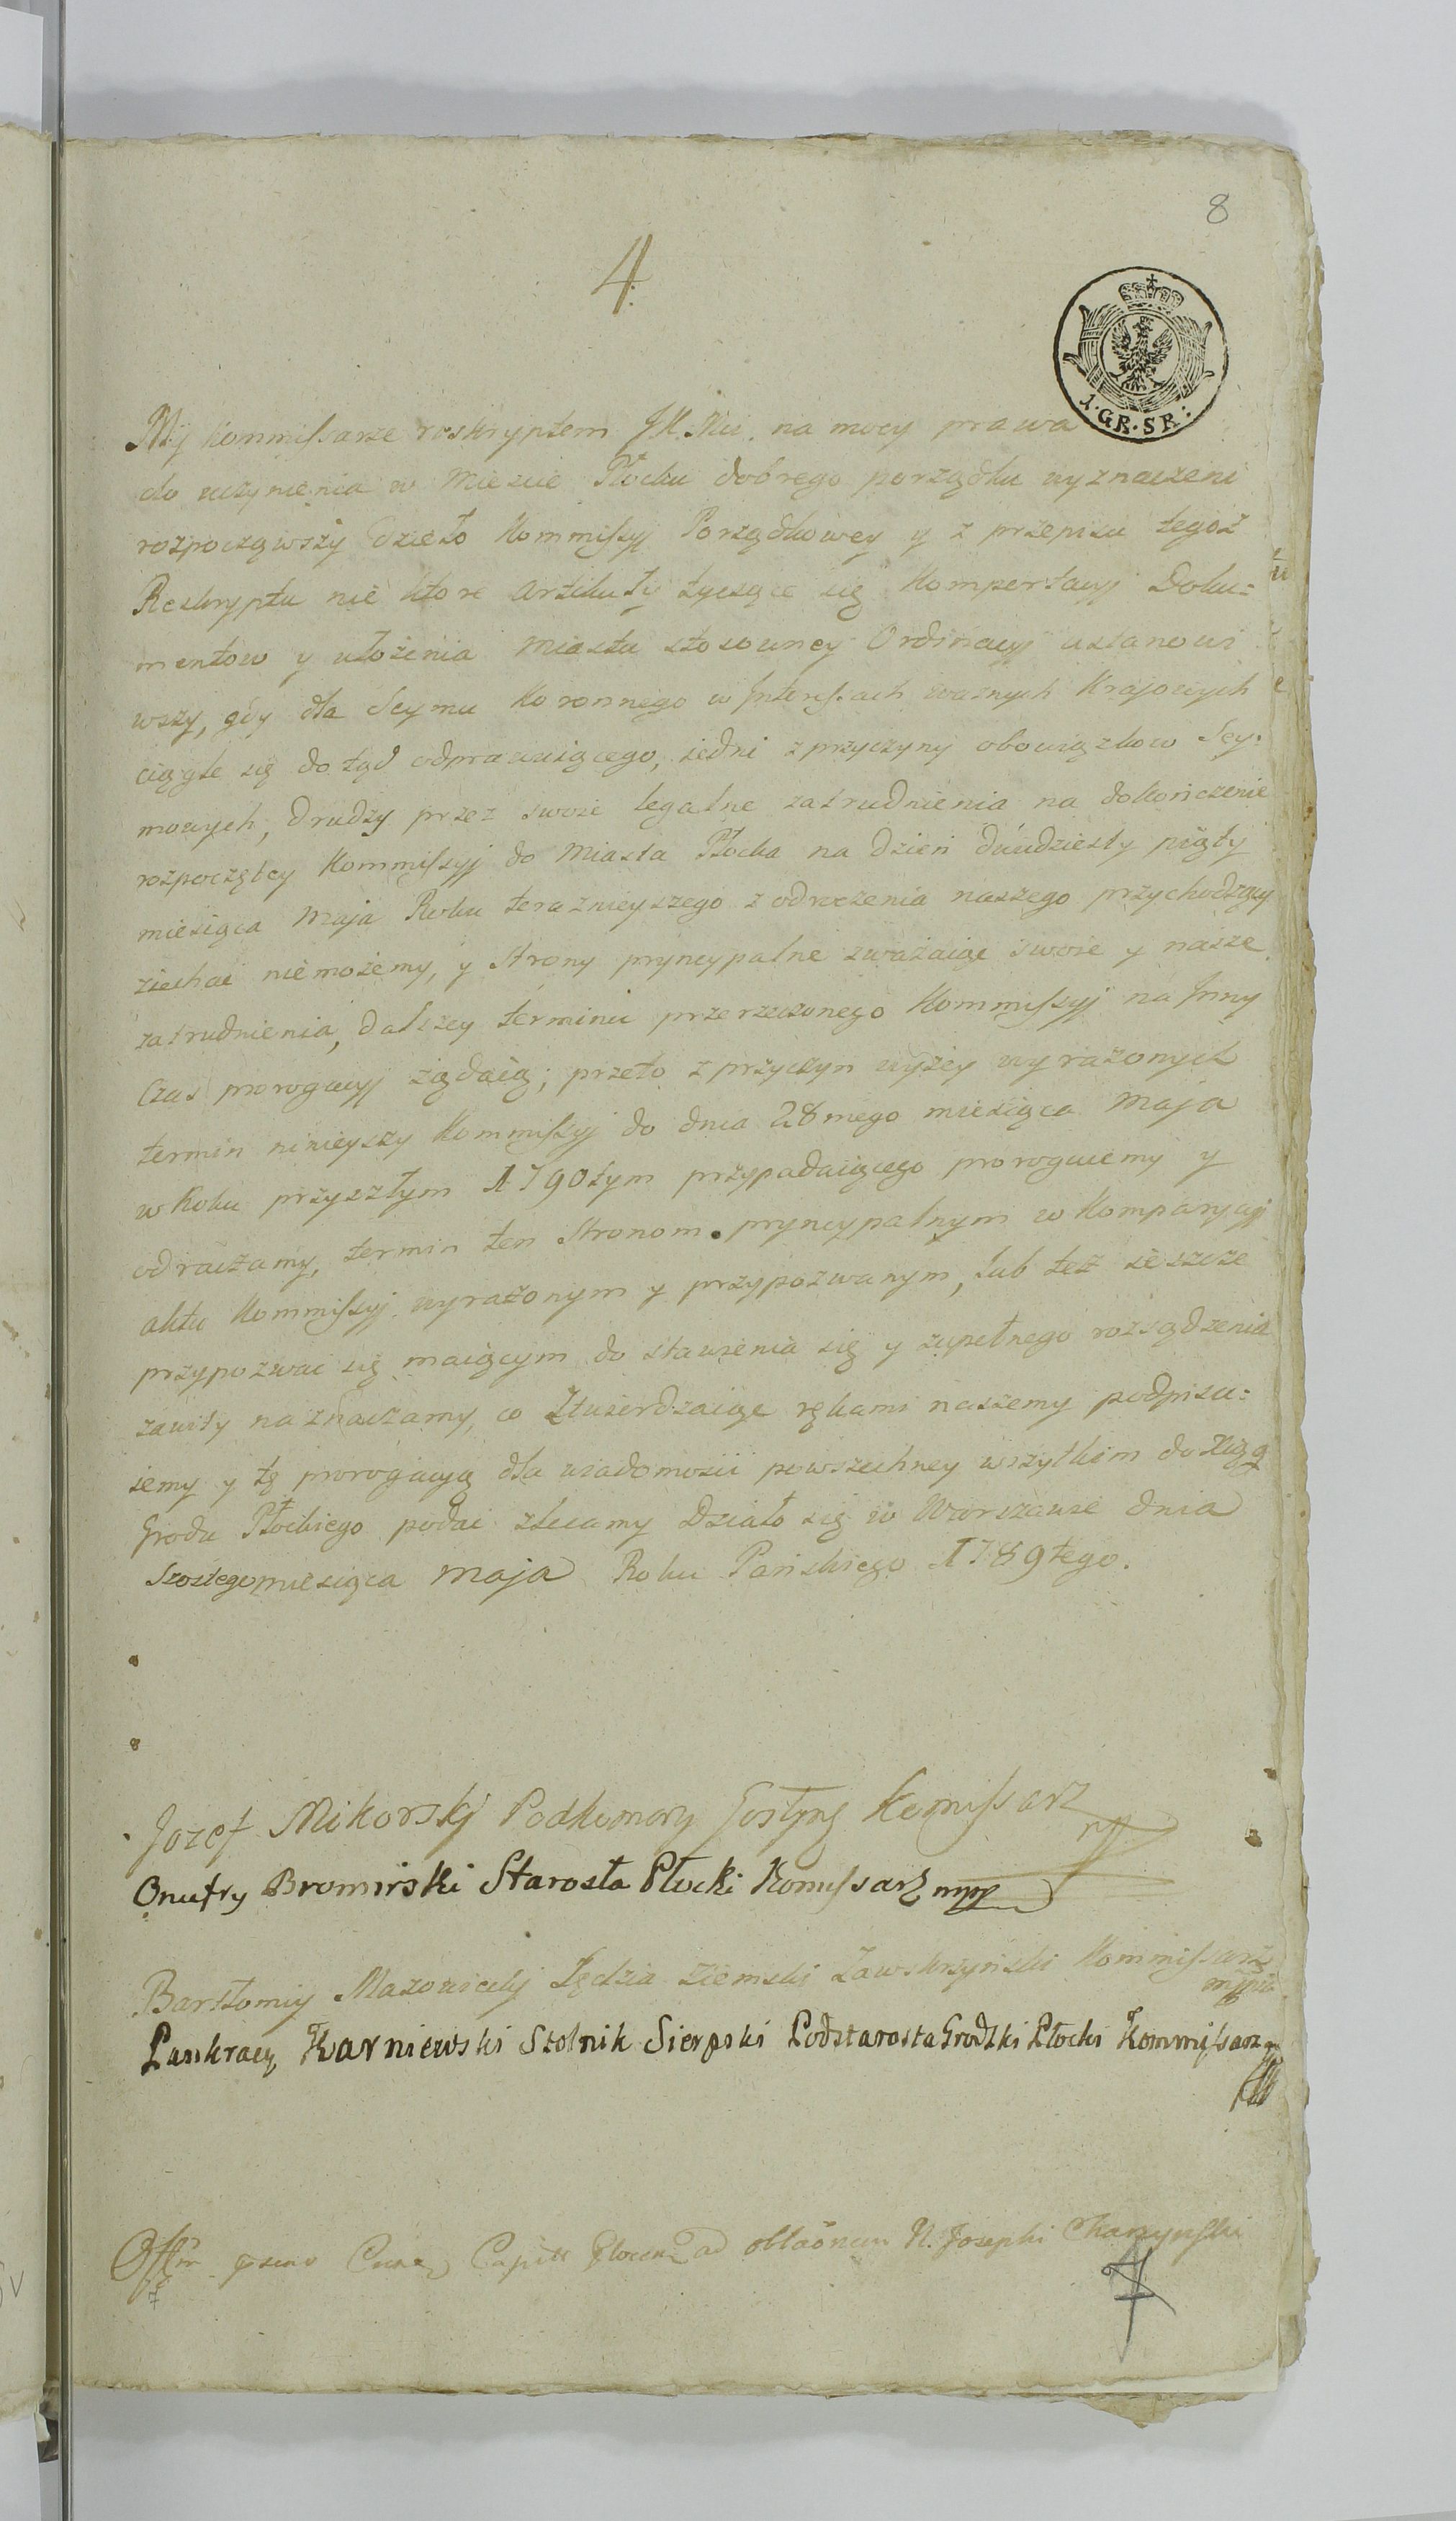 8
4.
1·GR·SR:
Mÿ Kommissarze reskryptem JK. Mci. na mocy prawa
do uczynienia w Miescie Płocku dobrego porządku wyznaczeni
rozpocząwszy Dzieło Kommissyi Porządkowey y z przepisu tegoż
Reskryptu nie ktore Artikuły tyczące się Komportacyi Doku=
mentow y ułożenia Miastu stosowney Ordinacyi ustanowi
wszy, gdy dla Seymu Koronnego w Interessach waznych Krajowych
ciągle się do tąd odprawuiącego, iedni z przyczyny obowiązkow Sey.
mowych, drudzy przez swoie legalne zatrudnienia na dokończenie
rozpoczętey Kommissyi do Miasta Płocka na dzień dwudziesty piąty
miesiąca Maja Roku teraznieyszego z odroczenia naszego przychodzący
ziechać niemożemy, y Strony pryncypalne zważaiąc swoie y nasze
zatrudnienia, dalszey terminu przerzeczonego Kommissyi na Inny
Czas prorogacyi żądaią; przeto z przyczyn wyżey wyrażonych
termin ninieyszy Kommissyi do dnia 28mego miesiąca Maja
w Roku przyszłym 1790tym przypadaiącego prorogujemy y
odraczamy, termin ten Stronom pryncypalnym w Komparycyi
aktu Kommissyi wyrażonym y przypozwanym, lub też ieszcze
przypozwać się maiącym do stawienia się y zupełnego rozsądzenia
zawity naznaczamy, co Ztwierdzaiąc rękami naszemy podpisu=
iemy y tę prorogacyą dla wiadomości powszechney wszytkim do Xiąg
Grodu Płockiego podać zlecamy Działo się w Warszawie dnia
Szostego miesiąca Maja Roku Pańskiego 1789tego.
Jozef Mikorskj Podkomorz Gostyns Komissarz
Onufry Bromirski Starosta Płocki Komissarz mpp
Bartłomiy Mazowiecki Sędzia Ziemski Zawskrzyński Kommissarz
mpp
Pankracy Karniewski Stolnik Sierpski Podstarosta Grodzki Płocki Kommissarz
ad oblaonem N. Josephi Charzynski